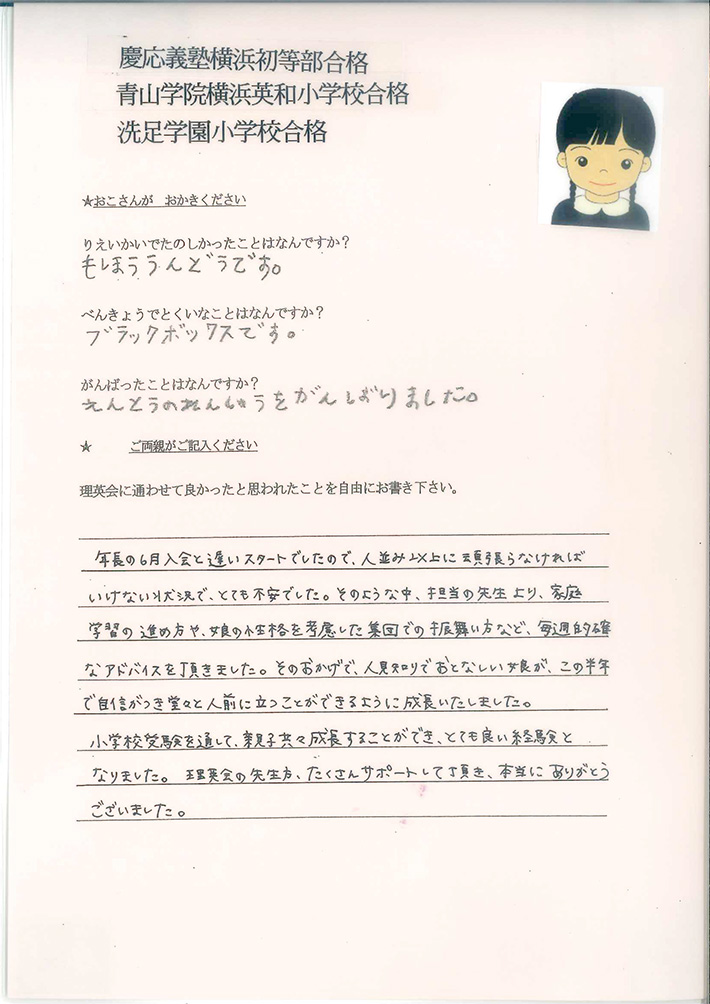 慶応義塾横浜初等部合格
青山学院横浜英和小学校合格
洗足学園小学校合格
★おこさんが　おかきください
りえいかいでたのしかったことはなんですか？
もほううんどうです。
べんきょうでとくいなことはなんですか？
ブラックボックスです。
がんばったことはなんですか？
えんとうのれんしゅうをがんばりました。
★　ご両親がご記入ください
理英会に通わせて良かったと思われたことを自由にお書き下さい。
年長の6月入会と遅いスタートでしたので、人並み以上に頑張らなければ
いけない状況で、とても不安でした。そのような中、担当の先生より、家庭
学習の進め方や、娘の性格を考慮した集団での振舞い方など、毎週的確
なアドバイスを頂きました。そのおかげで、人見知りでおとなしい娘が、この半年
で自信がつき堂々と人前に立つことができるように成長いたしました。
小学校受験を通して、親子共々成長することができ、とても良い経験と
なりました。理英会の先生方、たくさんサポートして頂き、本当にありがとう
ございました。